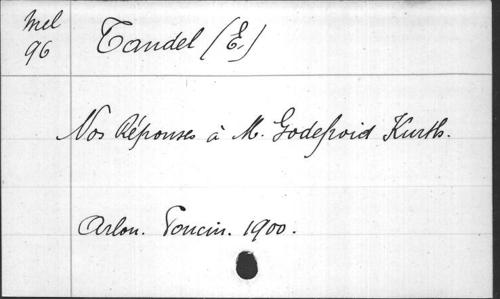 Mel
96
Tandel (E.)
Nos Réponses à M. Godefroid Kurth.
Arlon. Poncin. 1900.